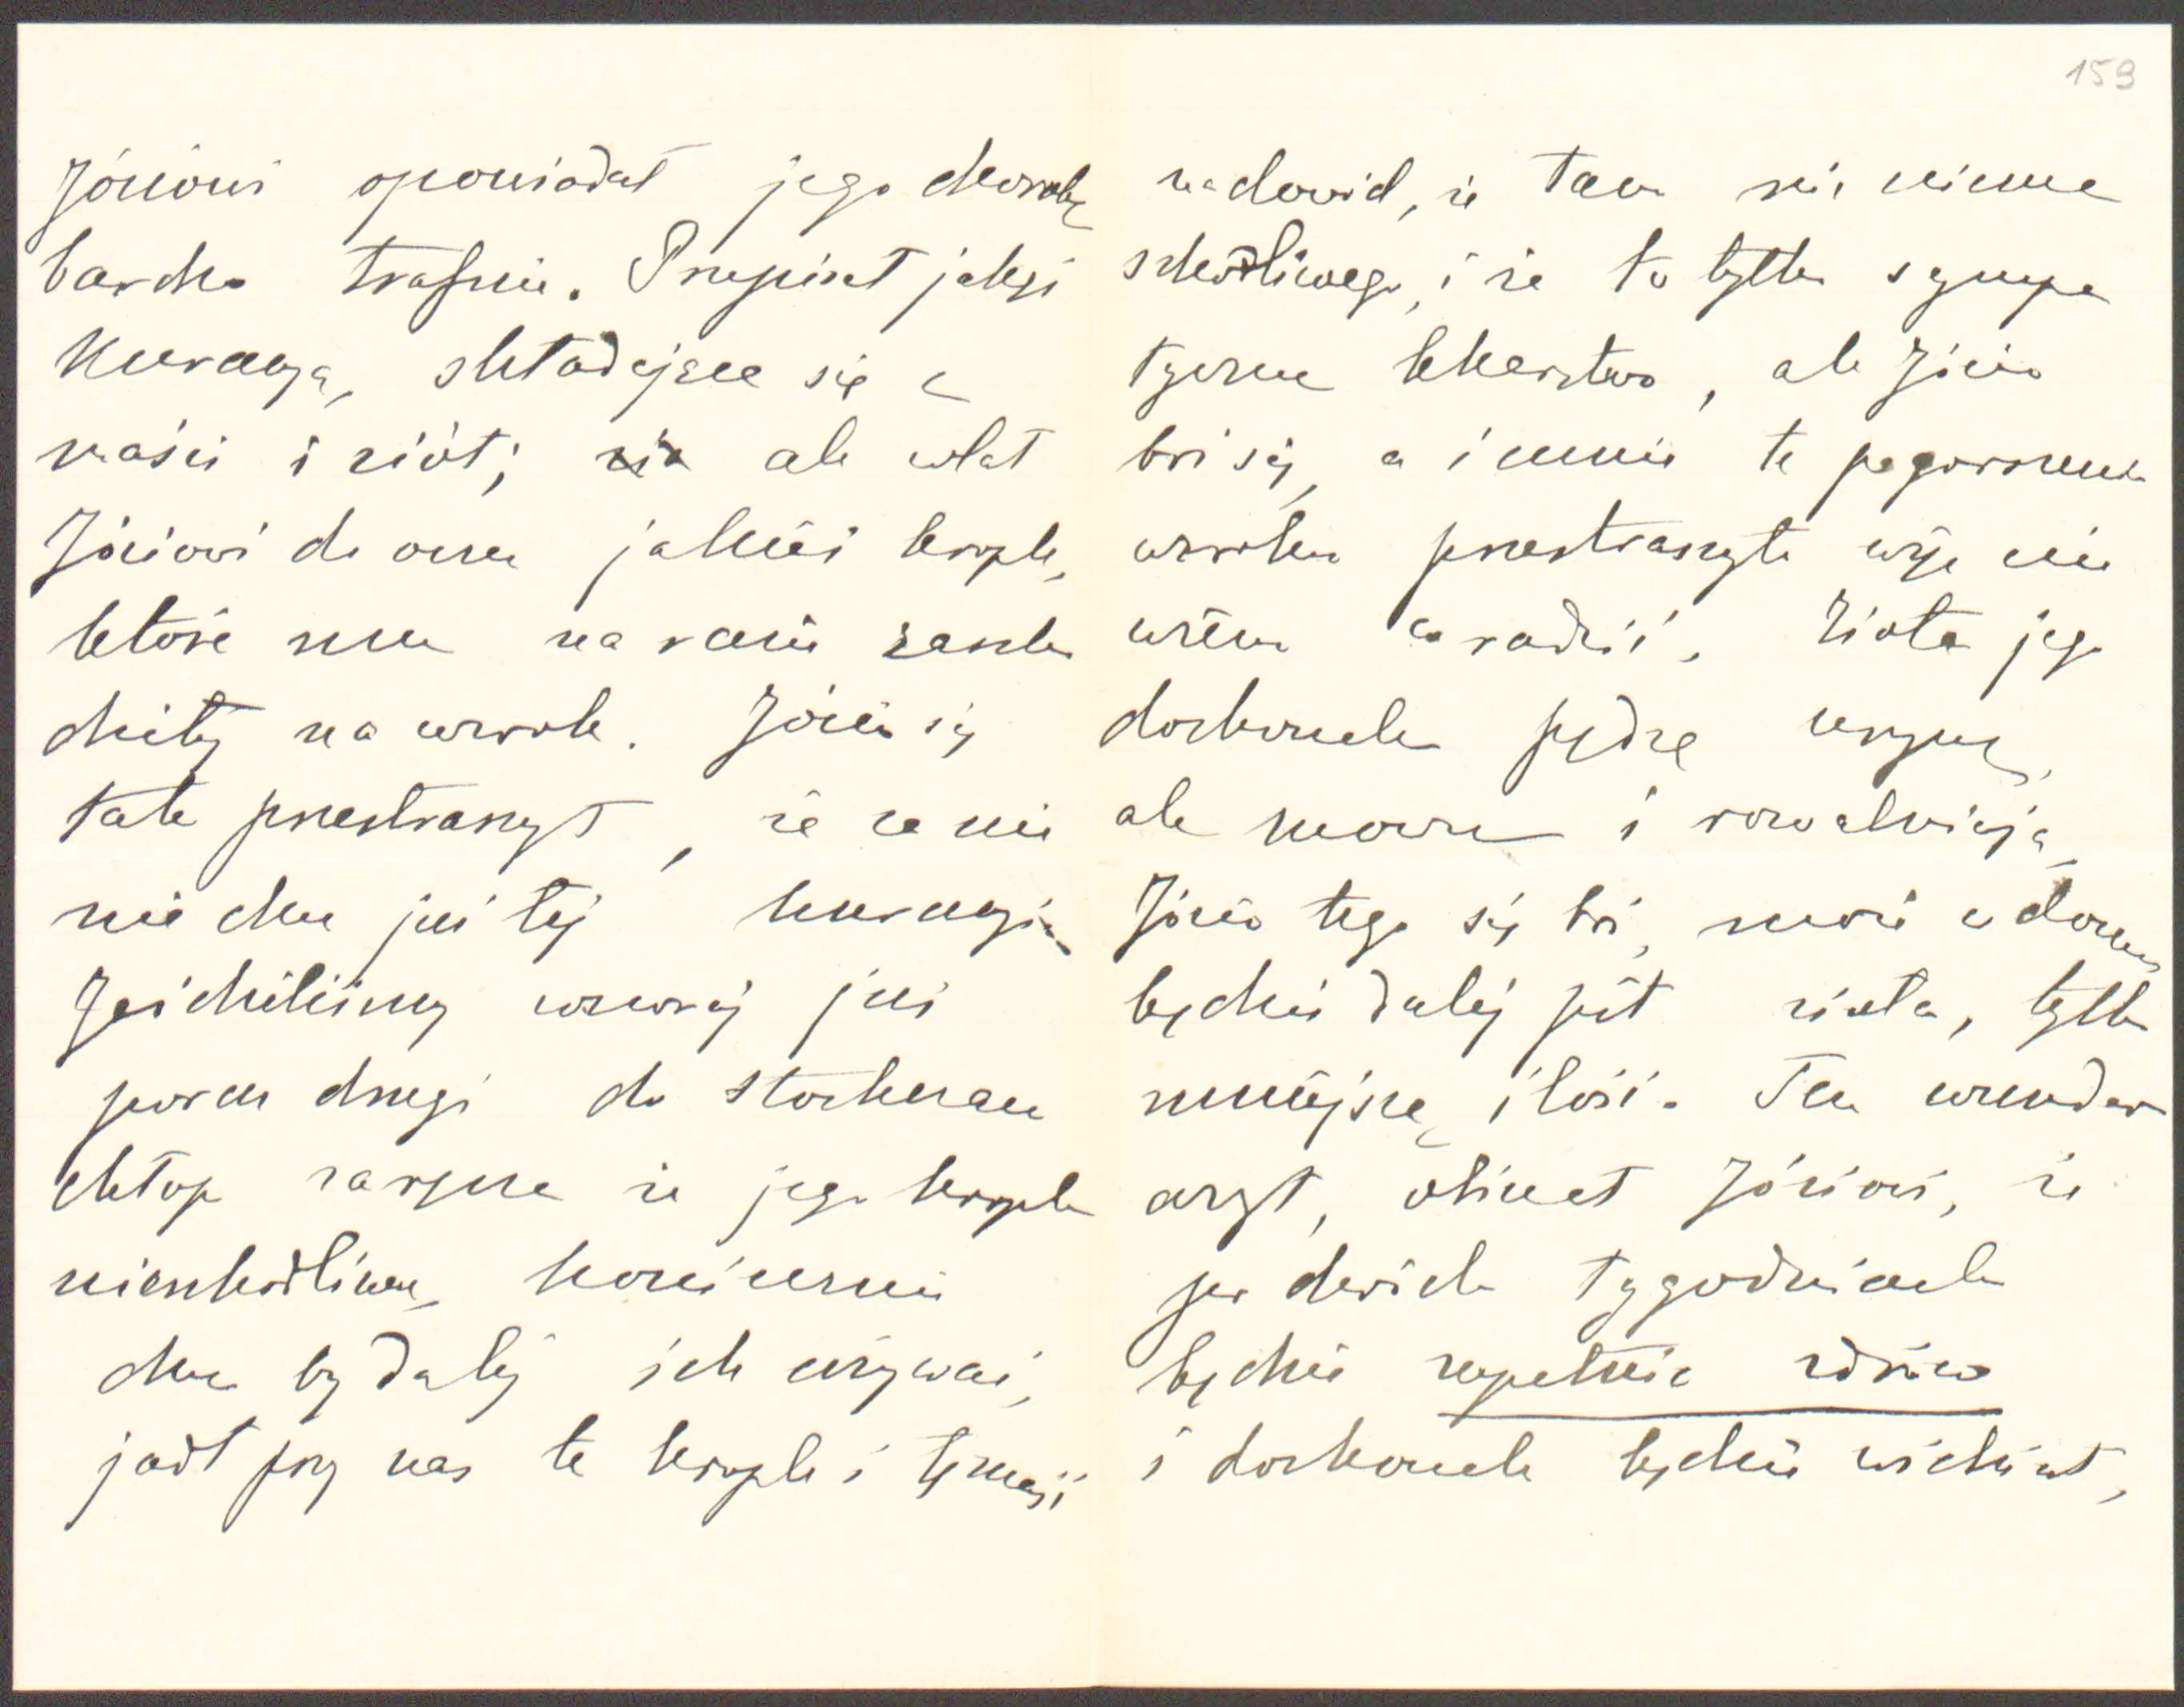 159
Józiowi opowiadał jego chorobę
bardzo trafnie. Przepisał jakąś
kuracyą, składającą się z
maści i ziół; ale wlał
Józiowi do oczu jakieś krople,
które mu na razie zaszko
dziły na wzrok. Józio się
tak przestraszył, że za nic
nie chce już tej kuracyi
Jeździliśmy wczoraj już
poraz drugi do Stockerau
chłop zaręcza że jego krople
nieszkodliwe, koniecznie
chce by dalej ich używać,
jadł przy nas te krople i tę maść
na dowód, że tam nic niema
szkodliwego, i że to tylko sympa
tyczne lekarstwo, ale Józio
boi się, a i mnie to pogorszenie
wzroku przestraszyło więc nie
wiem co radzić. Zioła jego
doskonale pędzą urynę,
ale mocno i rozwalniają,
Józio tego się boi, może w domu
będzie dalej pił zioła, tylko
mniejszą ilość. Ten wunder
arzt, obiecał Józiowi, że
po dwóch tygodniach
będzie zupełnie zdrów
i doskonale będzie widział,